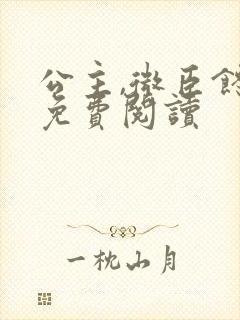 公主,微臣
免費閱讀
一枕山月